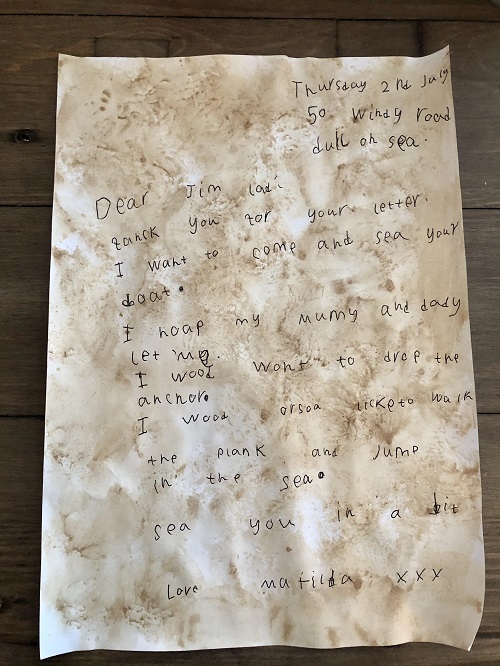 Thursday 2nd July
50 windy road
dull on sea.
Dear Jim lad.
tanck you for your letter.
I want to come and sea your
boat.
I hoap my mumy and dady
let me.
I wood want to drop the
anchor.
I wood orsoa licke to walk
the plank and jump
in the sea.
sea you in a bit
Love matilda xxx